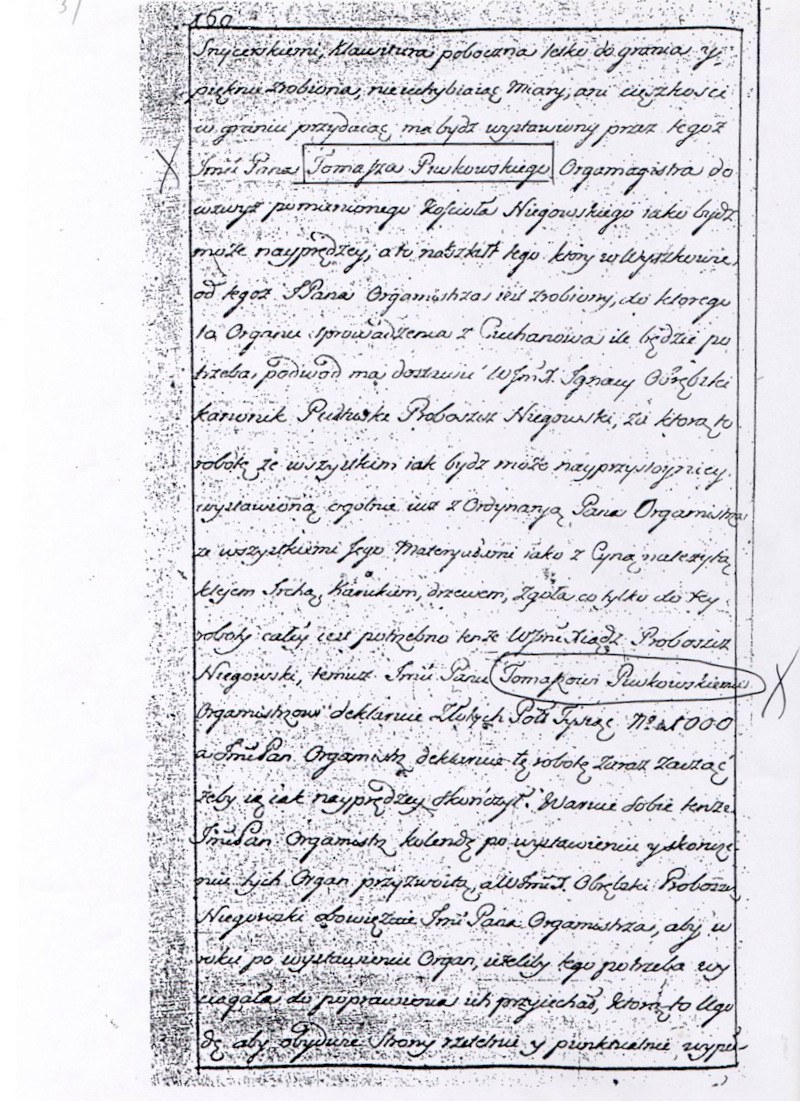 160
Snycerskiemi, Klawitura poboczna letko do grania y
pięknie zrobiona, nieuchybiaiąc Miary, ani ciężkosci
w graniu przydaiąc, ma bydz wystawiony przez tegoż
Jmći Pana Tomasza Piwkowskiego Orgamagistra do
wzwyż pomienionego Koscioła Niegowskiego iako bydz
może nayprędzey, a to nakształt tego ktory w Wyszkowie,
od tegoż JPana Orgamistrza iest zrobiony, do ktorego
to Organu sprowadzenia z Ciechanowa ile będzie po
trzeba, podwod ma dostawić WJmćX. Ignacy Obrębski
kanonik Pułtuski Proboszcz Niegowski, za ktorą to
robotę ze wszystkim iak bydz może nayprzystoyniey
wystawioną ogolnie iuż z Ordynaryą Pana Orgamistrza
ze wszystkiemi Jego Materyałami iako z Cyną należytą
klejem Jrchą, Karukiem, drzewem, zgoła co tylko do tey
roboty całey iest potrzebno tenże WJmć Xiądz Proboszcz
Niegowski, temuż Jmći Panu Tomaszowi Piwkowskiemu
Orgamistrzowi deklaruie Złotych Pols Tysiąc No 1000
a Jmć Pan Orgamistrz deklaruie tę robotę zaraz zacząć
żeby ią iak nayprędzey skończył. Waruie sobie tenże
Jmć Pan Orgamistrz kolendę po wystawieniu y skoncze
niu tych Organ przyzwoitą, a WJmćX. Obrębski Proboszcz
Niegowski obowięzuie Jmći Pana Orgamistrza, aby w
roku po wystawieniu Organ, ieżeliby tego potrzeba wy
ciągała do poprawienia ich przyjechał, ktorą to Ugo
dę aby obydwie Strony rzetelnie y punktualnie wypeł-